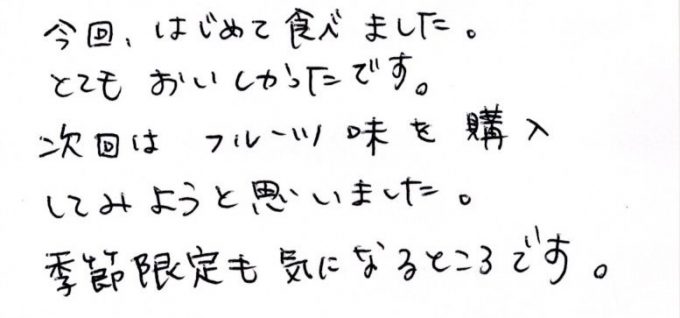 今回、はじめて食べました。
とても おいしかったです。
次回は フルーツ味を購入
してみようと思いました。
季節限定も気になるところです。